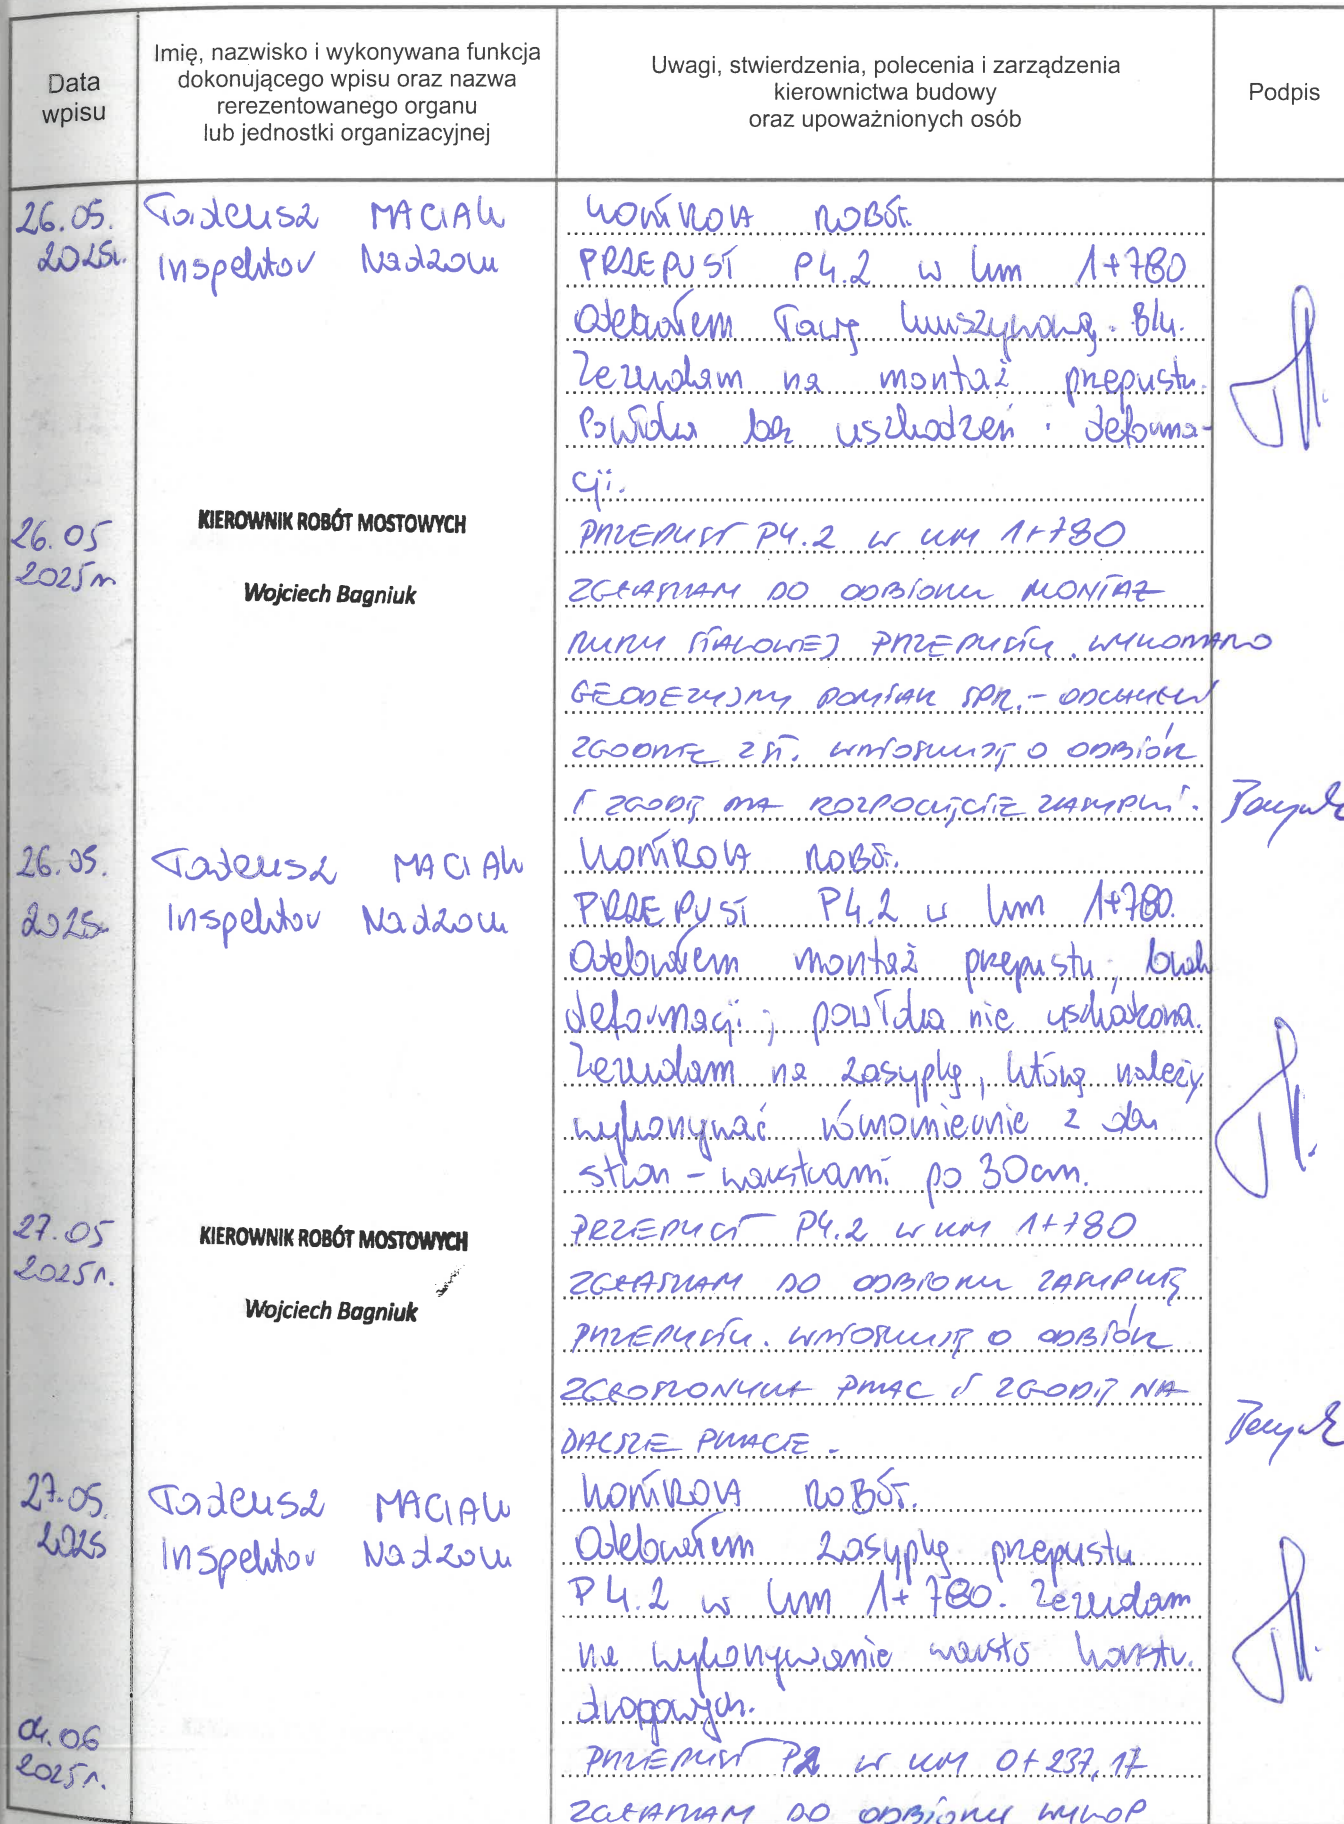 Data
wpisu
Imię, nazwisko i wykonywana funkcja
dokonującego wpisu oraz nazwa
rerezentowanego organu
lub jednostki organizacyjnej
Uwagi, stwierdzenia, polecenia i zarządzenia
kierownictwa budowy
oraz upoważnionych osób
Podpis
26.05.
2025r.
Tadeusz MACIAK
Inspektor Nadzoru
KONTROLA ROBÓT.
PRZEPUST P4.2 w km 1+780
Odebrałem ławę kruszywową. B/u.
Zezwalam na montaż przepustu.
Powłoka bez uszkodzeń i deforma-
cji.
26.05
2025r
KIEROWNIK ROBÓT MOSTOWYCH
Wojciech Bagniuk
PRZEPUST P4.2 w KM 1+780
ZGŁASZAM DO ODBIORU MONTAŻ
RURY STALOWEJ PRZEPUSTU. WYKONANO
GEODEZYJNY POMIAR SPR. - ODCHYŁKI
ZGODNIE Z ST. WNIOSKUJĘ O ODBIÓR
I ZGODĘ NA ROZPOCZĘCIE ZASYPKI.
26.05.
2025r
Tadeusz MACIAK
Inspektor Nadzoru
KONTROLA ROBÓT.
PRZEPUST P4.2 w km 1+780.
Odebrałem montaż przepustu, brak
deformacji, powłoka nie uszkodzona.
Zezwalam na zasypkę, którą należy
wykonywać równomiernie z obu
stron - warstwami po 30cm.
27.05
2025r.
KIEROWNIK ROBÓT MOSTOWYCH
Wojciech Bagniuk
PRZEPUST P4.2 w KM 1+780
ZGŁASZAM DO ODBIORU ZASYPKĘ
PRZEPUSTU. WNIOSKUJĘ O ODBIÓR
ZGŁOSZONYCH PRAC I ZGODĘ NA
DALSZE PRACE.
27.05.
2025
Tadeusz MACIAK
Inspektor Nadzoru
KONTROLA ROBÓT.
Odebrałem zasypkę przepustu
P4.2 w km 1+780. Zezwalam
na wykonywanie warstw konstr.
drogowych.
04.06
2025r.
PRZEPUST P2 w KM 0+237,17
ZGŁASZAM DO ODBIORU WYKOP